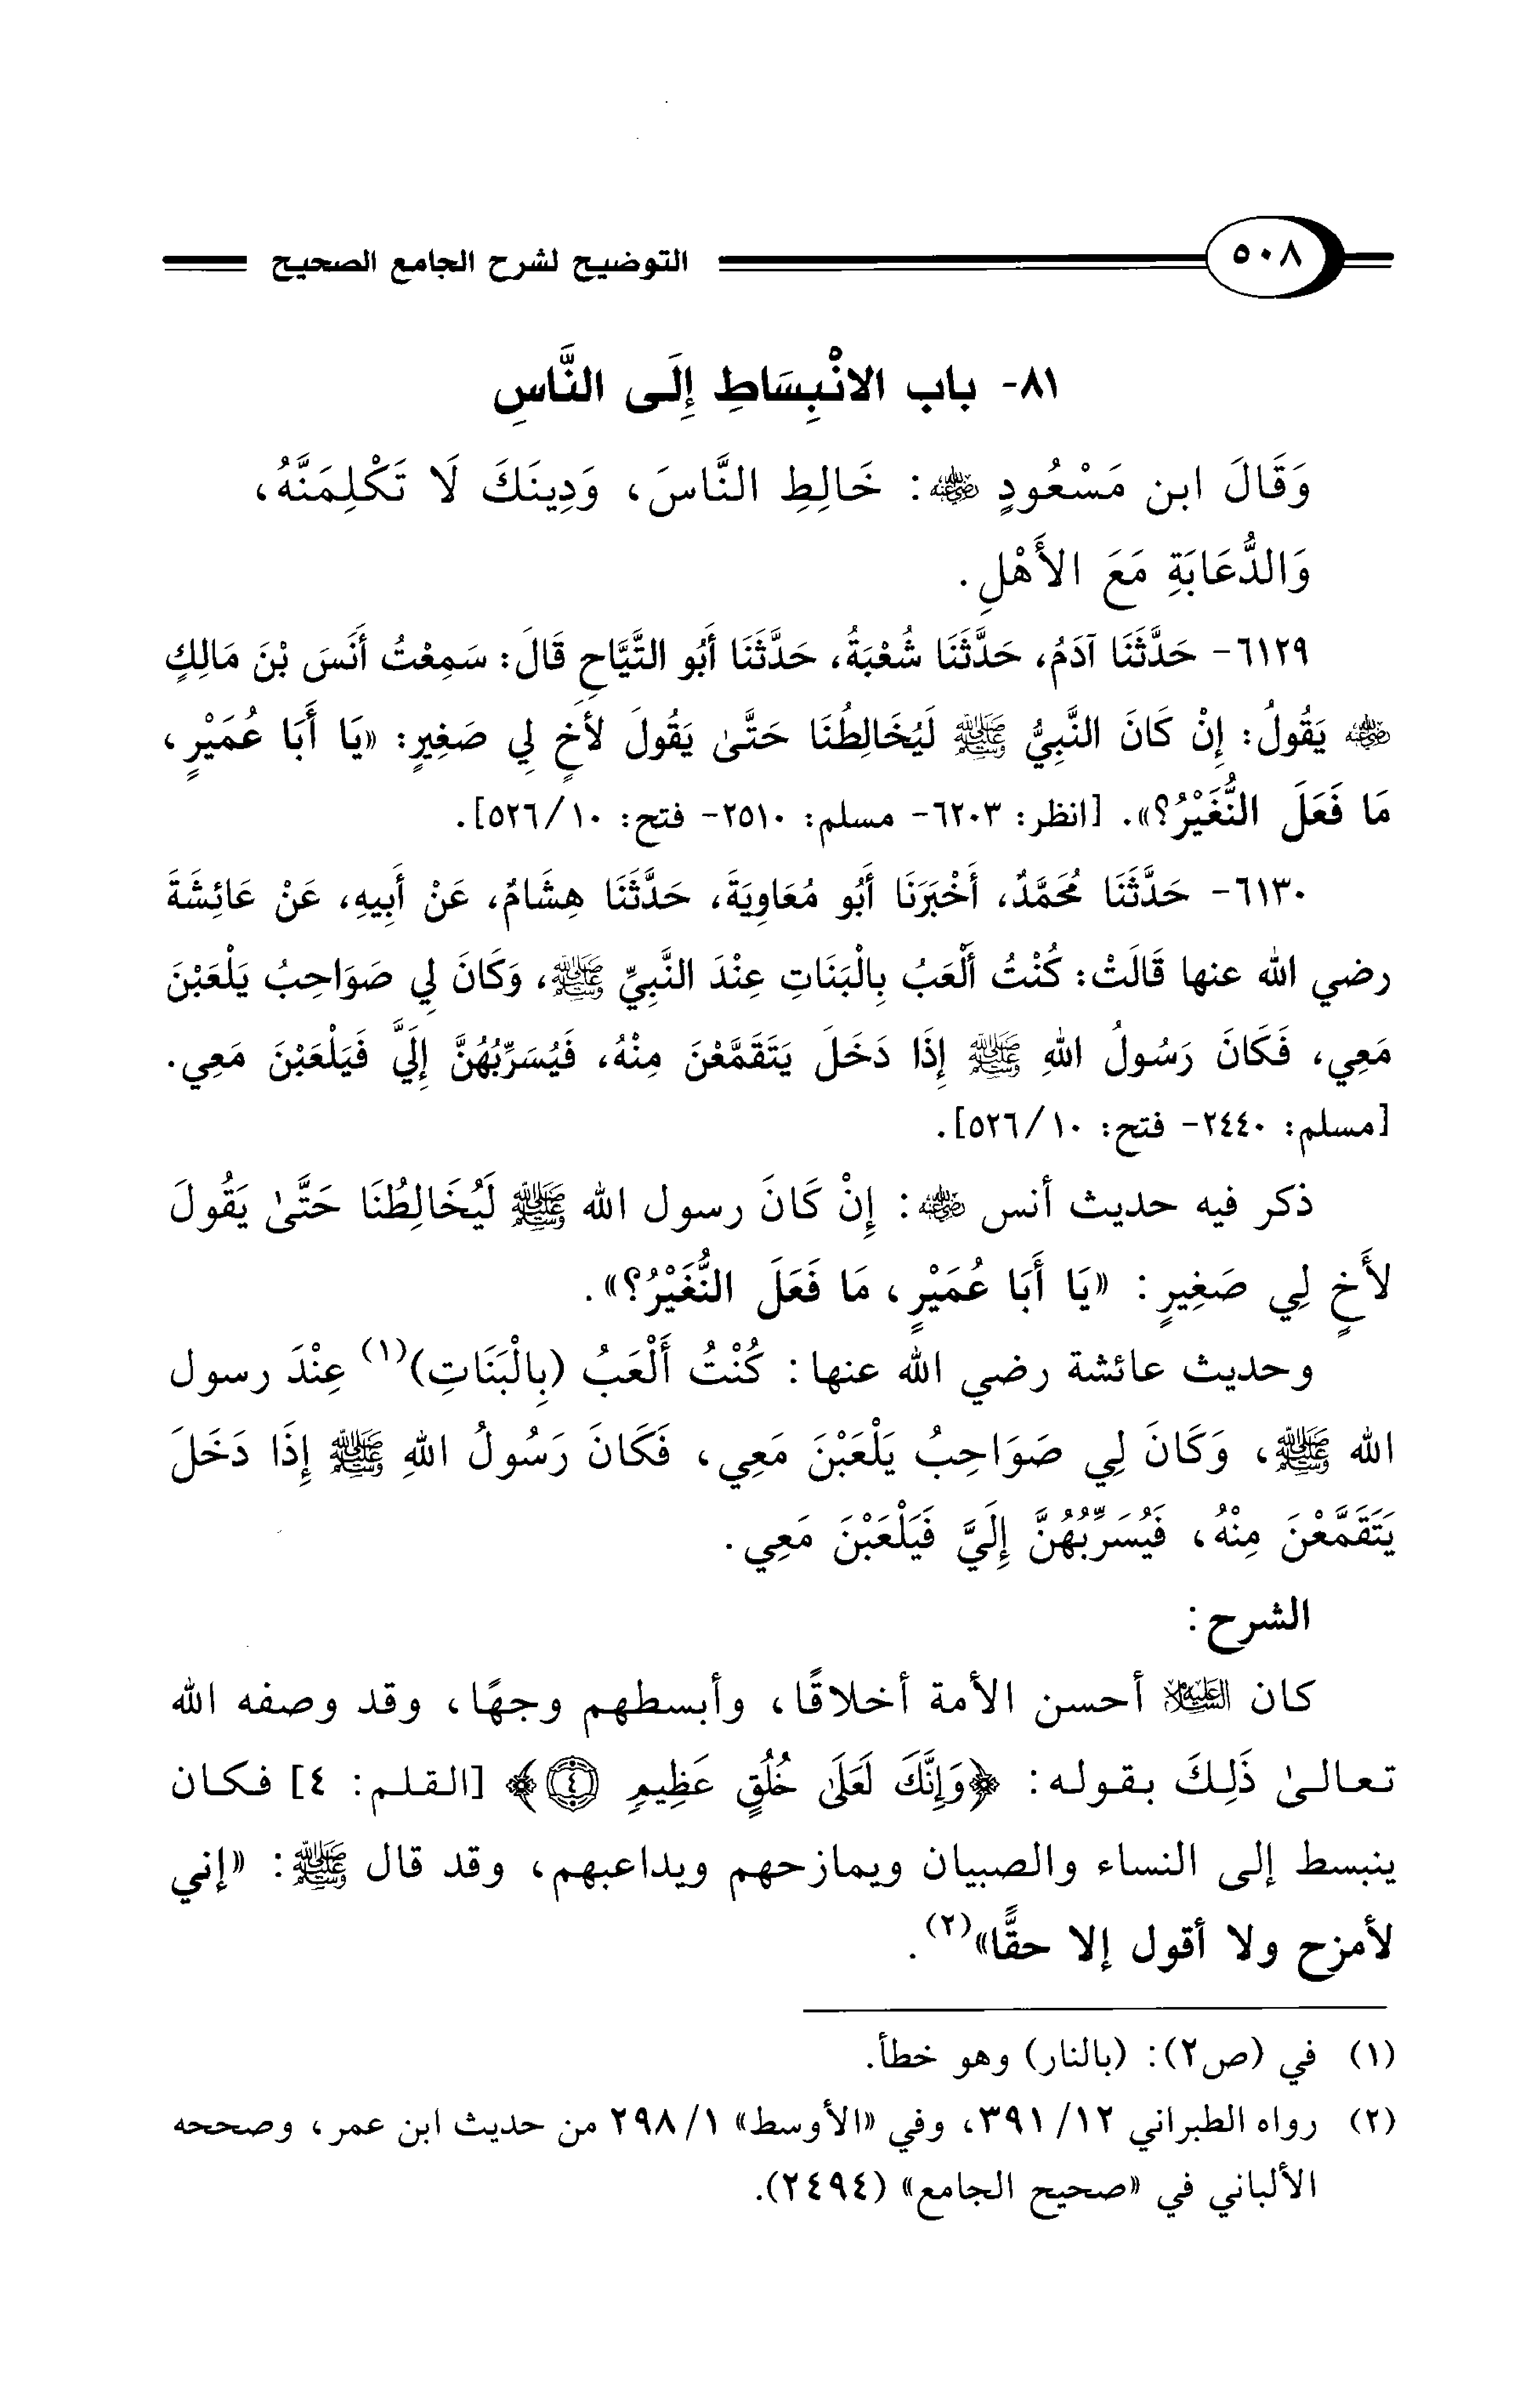 ٥٠٨ التوضيح لشرح الجامع الصحيح
٨١- باب الانْبِسَاطِ إِلَى النَّاسِ
وَقَالَ ابن مَسْعُودٍ رضي الله عنه: خَالِطِ النَّاسَ، وَدِينَكَ لَا تَكْلِمَنَّهُ،
وَالدُّعَابَةِ مَعَ الأَهْلِ.
٦١٢٩- حَدَّثَنَا آدَمُ، حَدَّثَنَا شُعْبَةُ، حَدَّثَنَا أَبُو التَّيَّاحِ قَالَ: سَمِعْتُ أَنَسَ بْنَ مَالِكٍ
رضي الله عنه يَقُولُ: إِنْ كَانَ النَّبِيُّ ﷺ لَيُخَالِطُنَا حَتَّىٰ يَقُولَ لأَخٍ لِي صَغِيرٍ: «يَا أَبَا عُمَيْرٍ،
مَا فَعَلَ النُّغَيْرُ؟». [انظر: ٦٢٠٣- مسلم: ٢٥١٠- فتح: ١٠/٥٢٦].
٦١٣٠- حَدَّثَنَا مُحَمَّدٌ، أَخْبَرَنَا أَبُو مُعَاوِيَةَ، حَدَّثَنَا هِشَامٌ، عَنْ أَبِيهِ، عَنْ عَائِشَةَ
رضي الله عنها قَالَتْ: كُنْتُ أَلْعَبُ بِالْبَنَاتِ عِنْدَ النَّبِيِّ ﷺ، وَكَانَ لِي صَوَاحِبُ يَلْعَبْنَ
مَعِي، فَكَانَ رَسُولُ اللهِ ﷺ إِذَا دَخَلَ يَتَقَمَّعْنَ مِنْهُ، فَيُسَرِّبُهُنَّ إِلَيَّ فَيَلْعَبْنَ مَعِي.
[مسلم: ٢٤٤٠- فتح: ١٠/٥٢٦].
ذكر فيه حديث أنس رضي الله عنه: إِنْ كَانَ رسول الله ﷺ لَيُخَالِطُنَا حَتَّىٰ يَقُولَ
لأَخٍ لِي صَغِيرٍ: «يَا أَبَا عُمَيْرٍ، مَا فَعَلَ النُّغَيْرُ؟».
وحديث عائشة رضي الله عنها: كُنْتُ أَلْعَبُ (بِالْبَنَاتِ)(١) عِنْدَ رسول
الله ﷺ، وَكَانَ لِي صَوَاحِبُ يَلْعَبْنَ مَعِي، فَكَانَ رَسُولُ اللهِ ﷺ إِذَا دَخَلَ
يَتَقَمَّعْنَ مِنْهُ، فَيُسَرِّبُهُنَّ إِلَيَّ فَيَلْعَبْنَ مَعِي.
الشرح:
كان عليه السلام أحسن الأمة أخلاقًا، وأبسطهم وجهًا، وقد وصفه الله
تعالىٰ ذَلِكَ بقوله: ﴿وَإِنَّكَ لَعَلَىٰ خُلُقٍ عَظِيمٍ ٤﴾ [القلم: ٤] فكان
ينبسط إلى النساء والصبيان ويمازحهم ويداعبهم، وقد قال ﷺ: «إني
لأمزح ولا أقول إلا حقًّا»(٢).
(١) في (ص٢): (بالنار) وهو خطأ.
(٢) رواه الطبراني ١٢/ ٣٩١، وفي «الأوسط» ١/ ٢٩٨ من حديث ابن عمر، وصححه
الألباني في «صحيح الجامع» (٢٤٩٤).